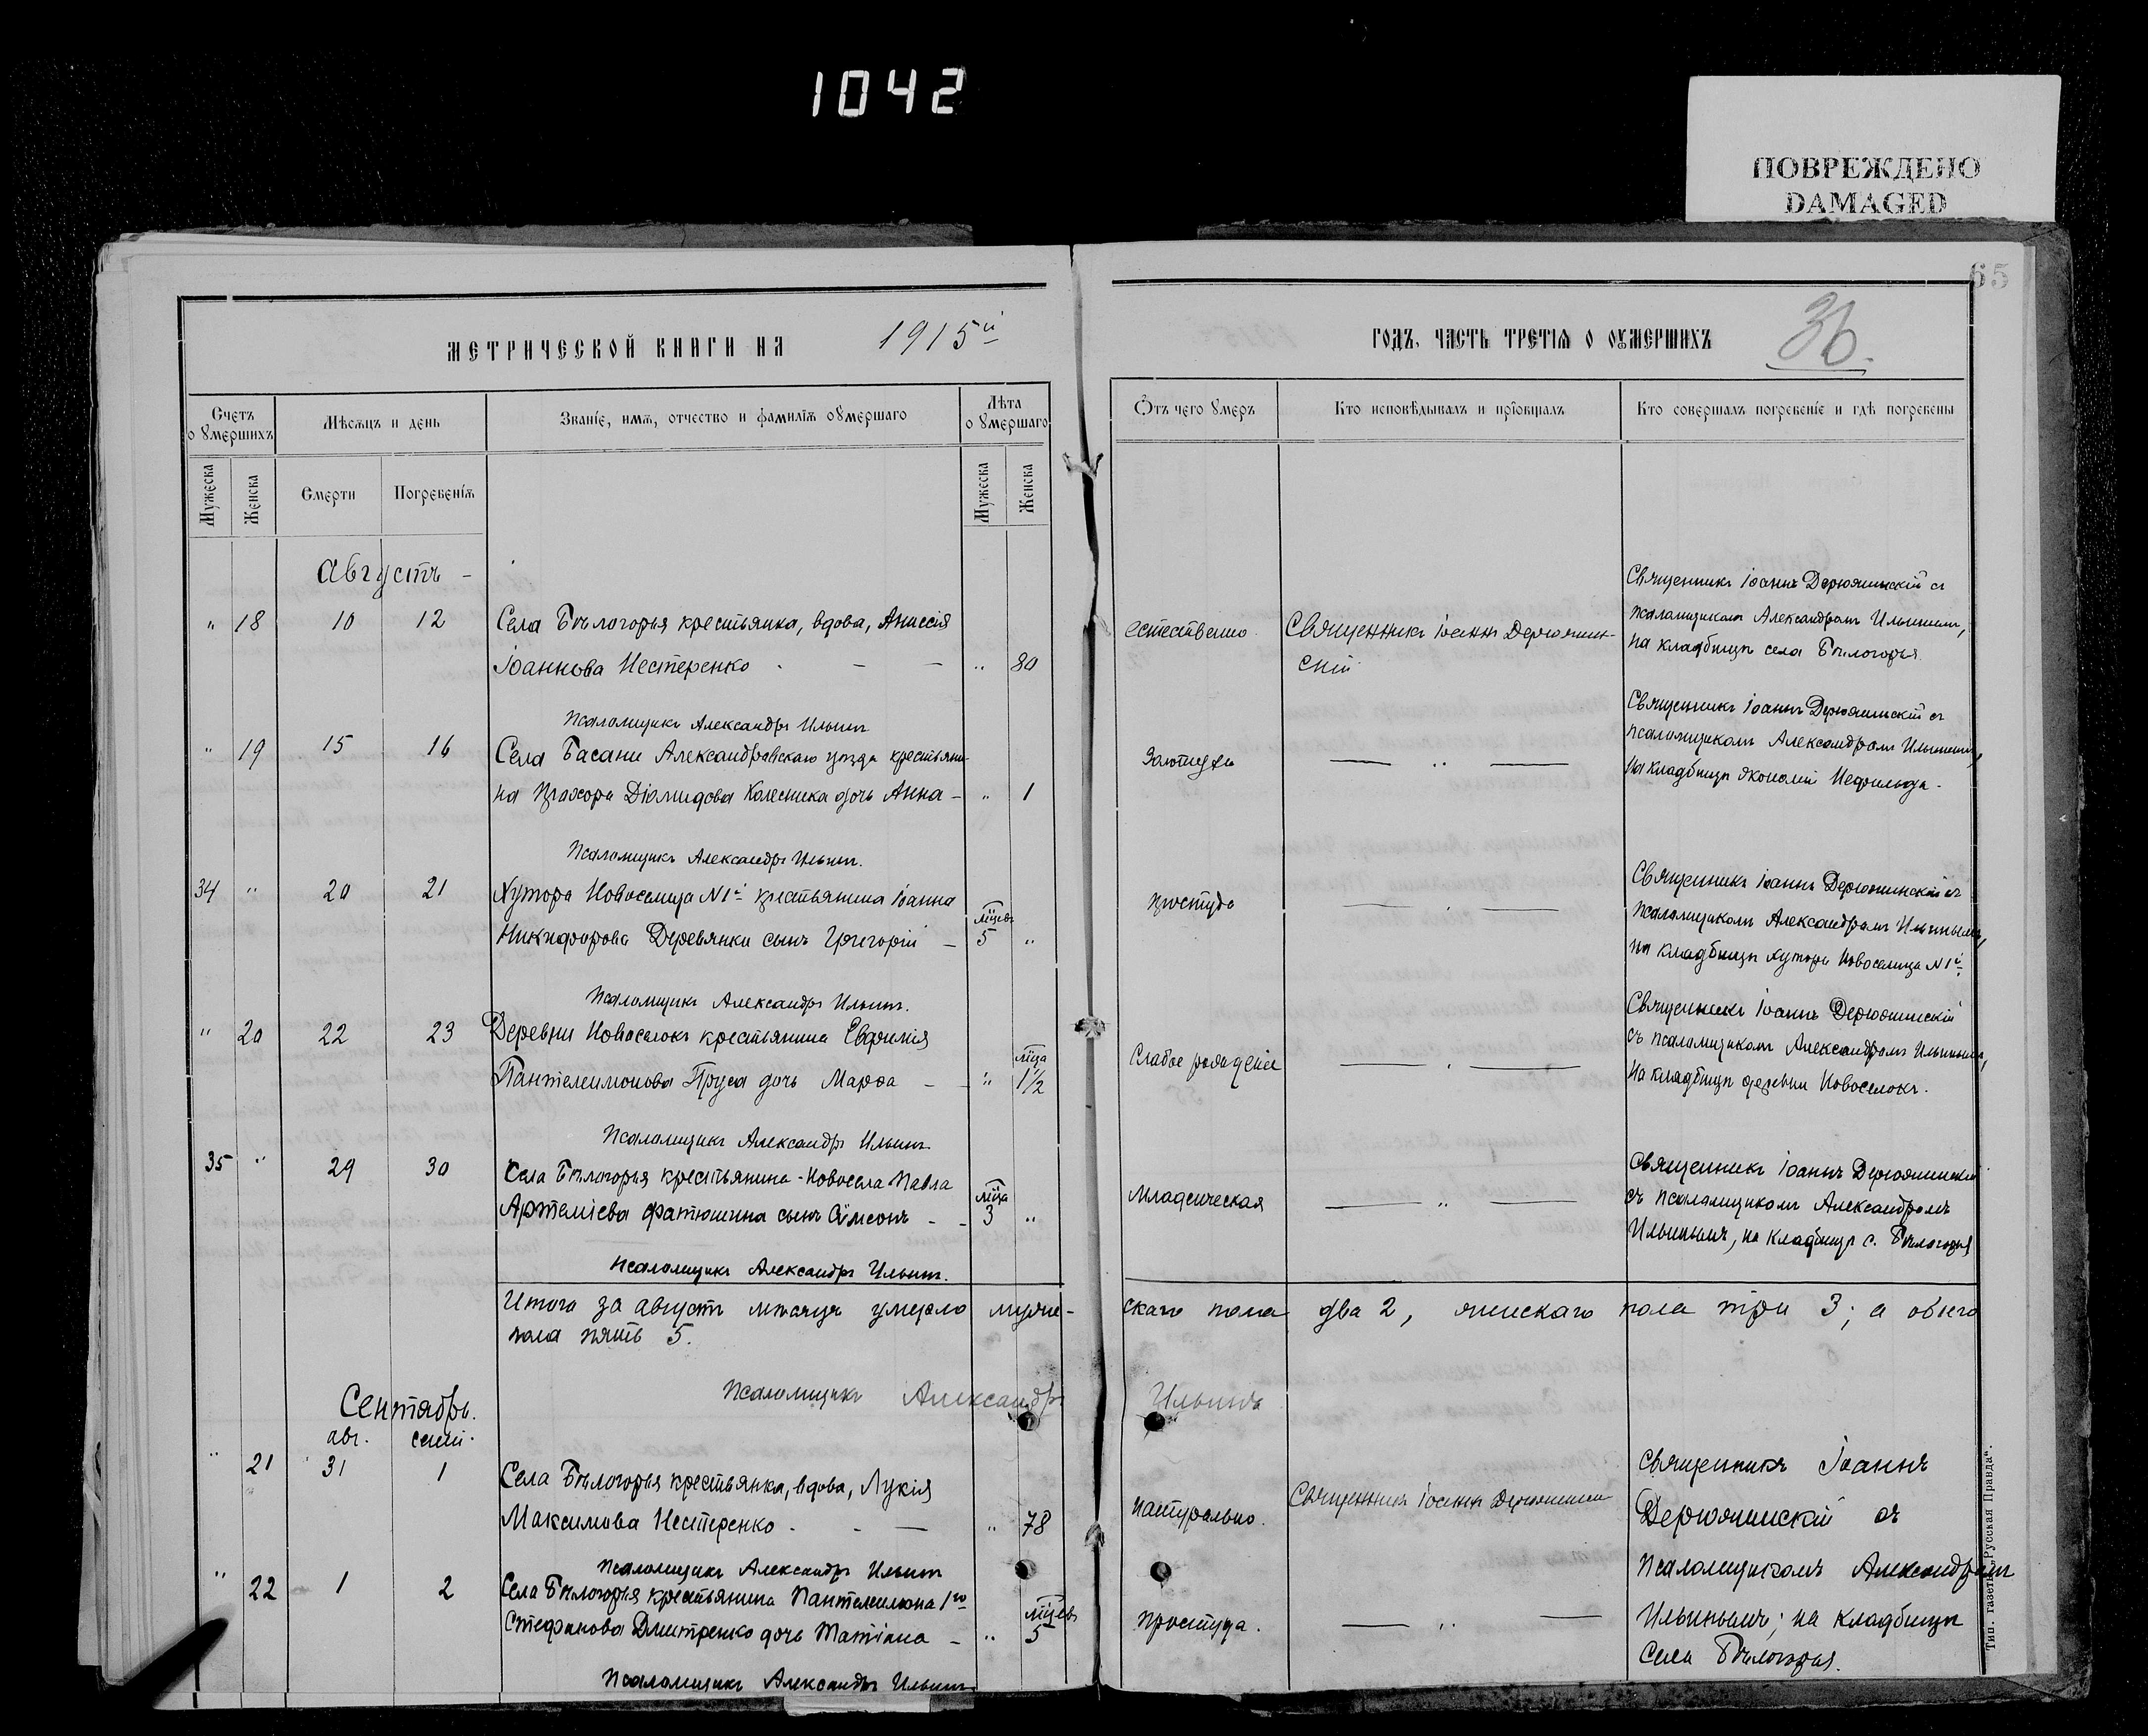 1042
ПОВРЕЖДЕНО
DAMAGED
65
МЕТРИЧЕСКОЙ КНИГИ НА 1915й
ГОДЪ, ЧАСТЬ ТРЕТІѦ О ОУМЕРШИХЪ
36.
Счетъ о ѹмершихъ
Мѣсѧцъ и день
Званіе, имѧ, отчество и фамиліѧ оумершаго
Лѣта о ѹмершаго
Ѿтъ чего ѹмеръ
Кто исповѣдывалъ и пріобщалъ
Кто совершалъ погребеніе и гдѣ погребены
Мужеска
Женска
Смерти
Погребеніѧ
Мужеска
Женска
Августъ -
" 18 10 12 Села Бѣлогорья крестьянка, вдова, Анисія
Іоаннова Нестеренко - - - " 80
естественно
Священникъ Іоаннъ Дерюжин-
скій
Священникъ Іоаннъ Дерюжинскій съ
псаломщикомъ Александромъ Ильинымъ,
на кладбищѣ села Бѣлогорья.
Псаломщикъ Александръ Ильинъ
" 19 15 16 Села Басани Александровскаго уѣзда крестьяни-
на Прохора Діомидова Колесника дочь Анна - " 1
— " —
Священникъ Іоаннъ Дерюжинскій съ
псаломщикомъ Александромъ Ильинымъ,
на кладбищѣ экономіи
Псаломщикъ Александръ Ильинъ.
34 " 20 21 Хутора Новоселица N1й крестьянина Іоанна
Никифорова Деревянки сынъ Григорій - мцевъ 5 "
простуда
— " —
Священникъ Іоаннъ Дерюжинскій съ
псаломщикомъ Александромъ Ильинымъ,
на кладбищѣ хутора Новоселица N1й.
Псаломщикъ Александръ Ильинъ.
" 20 22 23 Деревни Новоселокъ крестьянина Евфимія
Пантелеимонова Пруса дочь Марѳа - " мца 1½
Слабое рожденіе
— " —
Священникъ Іоаннъ Дерюжинскій
съ псаломщикомъ Александромъ Ильинымъ,
на кладбищѣ деревни Новоселокъ.
Псаломщикъ Александръ Ильинъ.
35 " 29 30 Села Бѣлогорья крестьянина-новосела Павла
Артеміева Фатюшина сынъ Сѵмеонъ - - мца 3 "
младенческая
— " —
Священникъ Іоаннъ Дерюжинскій
съ псаломщикомъ Александромъ
Ильинымъ, на кладбищѣ с. Бѣлогорья
Псаломщикъ Александръ Ильинъ.
Итого за августъ мѣсяцъ умерло муже-скаго пола два 2, женскаго пола три 3; а обоего
пола пять 5.
Псаломщикъ Александръ Ильинъ
Сентябрь.
авг. сент.
" 21 31 1 Села Бѣлогорья крестьянка, вдова, Лукія
Максимова Нестеренко - - — " 78
натурально.
Священникъ Іоаннъ Дерюжинскій
Священникъ Іоаннъ
Дерюжинскій съ
Псаломщикъ Александръ Ильинъ
псаломщикомъ Александромъ
" 22 1 2 Села Бѣлогорья крестьянина Пантелеимона 1го
Стефанова Дмитренко дочь Татіана - " мцевъ 5
простуда.
— " —
Ильинымъ; на кладбищѣ
села Бѣлогорья.
Псаломщикъ Александръ Ильинъ
Тип. газеты „Русская Правда".